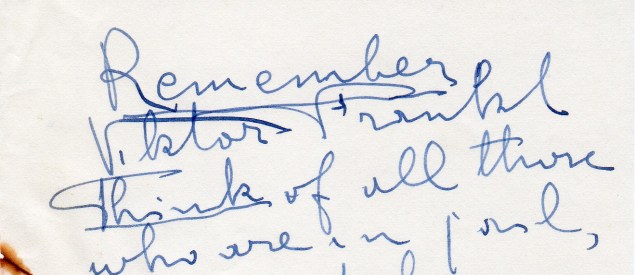 Remember
Viktor Frankl
Think of all those
who are in jail,